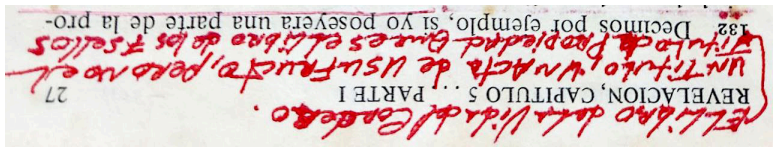 El Libro de la Vida del Cordero.
REVELACION, CAPITULO 5 ... PARTE I 27
un Titulo, un Acta de usufructo, pero no el
Titulo de Propiedad que es el Libro de los 7 sellos
132 Decimos por ejemplo, si yo poseyera una parte de la pro-